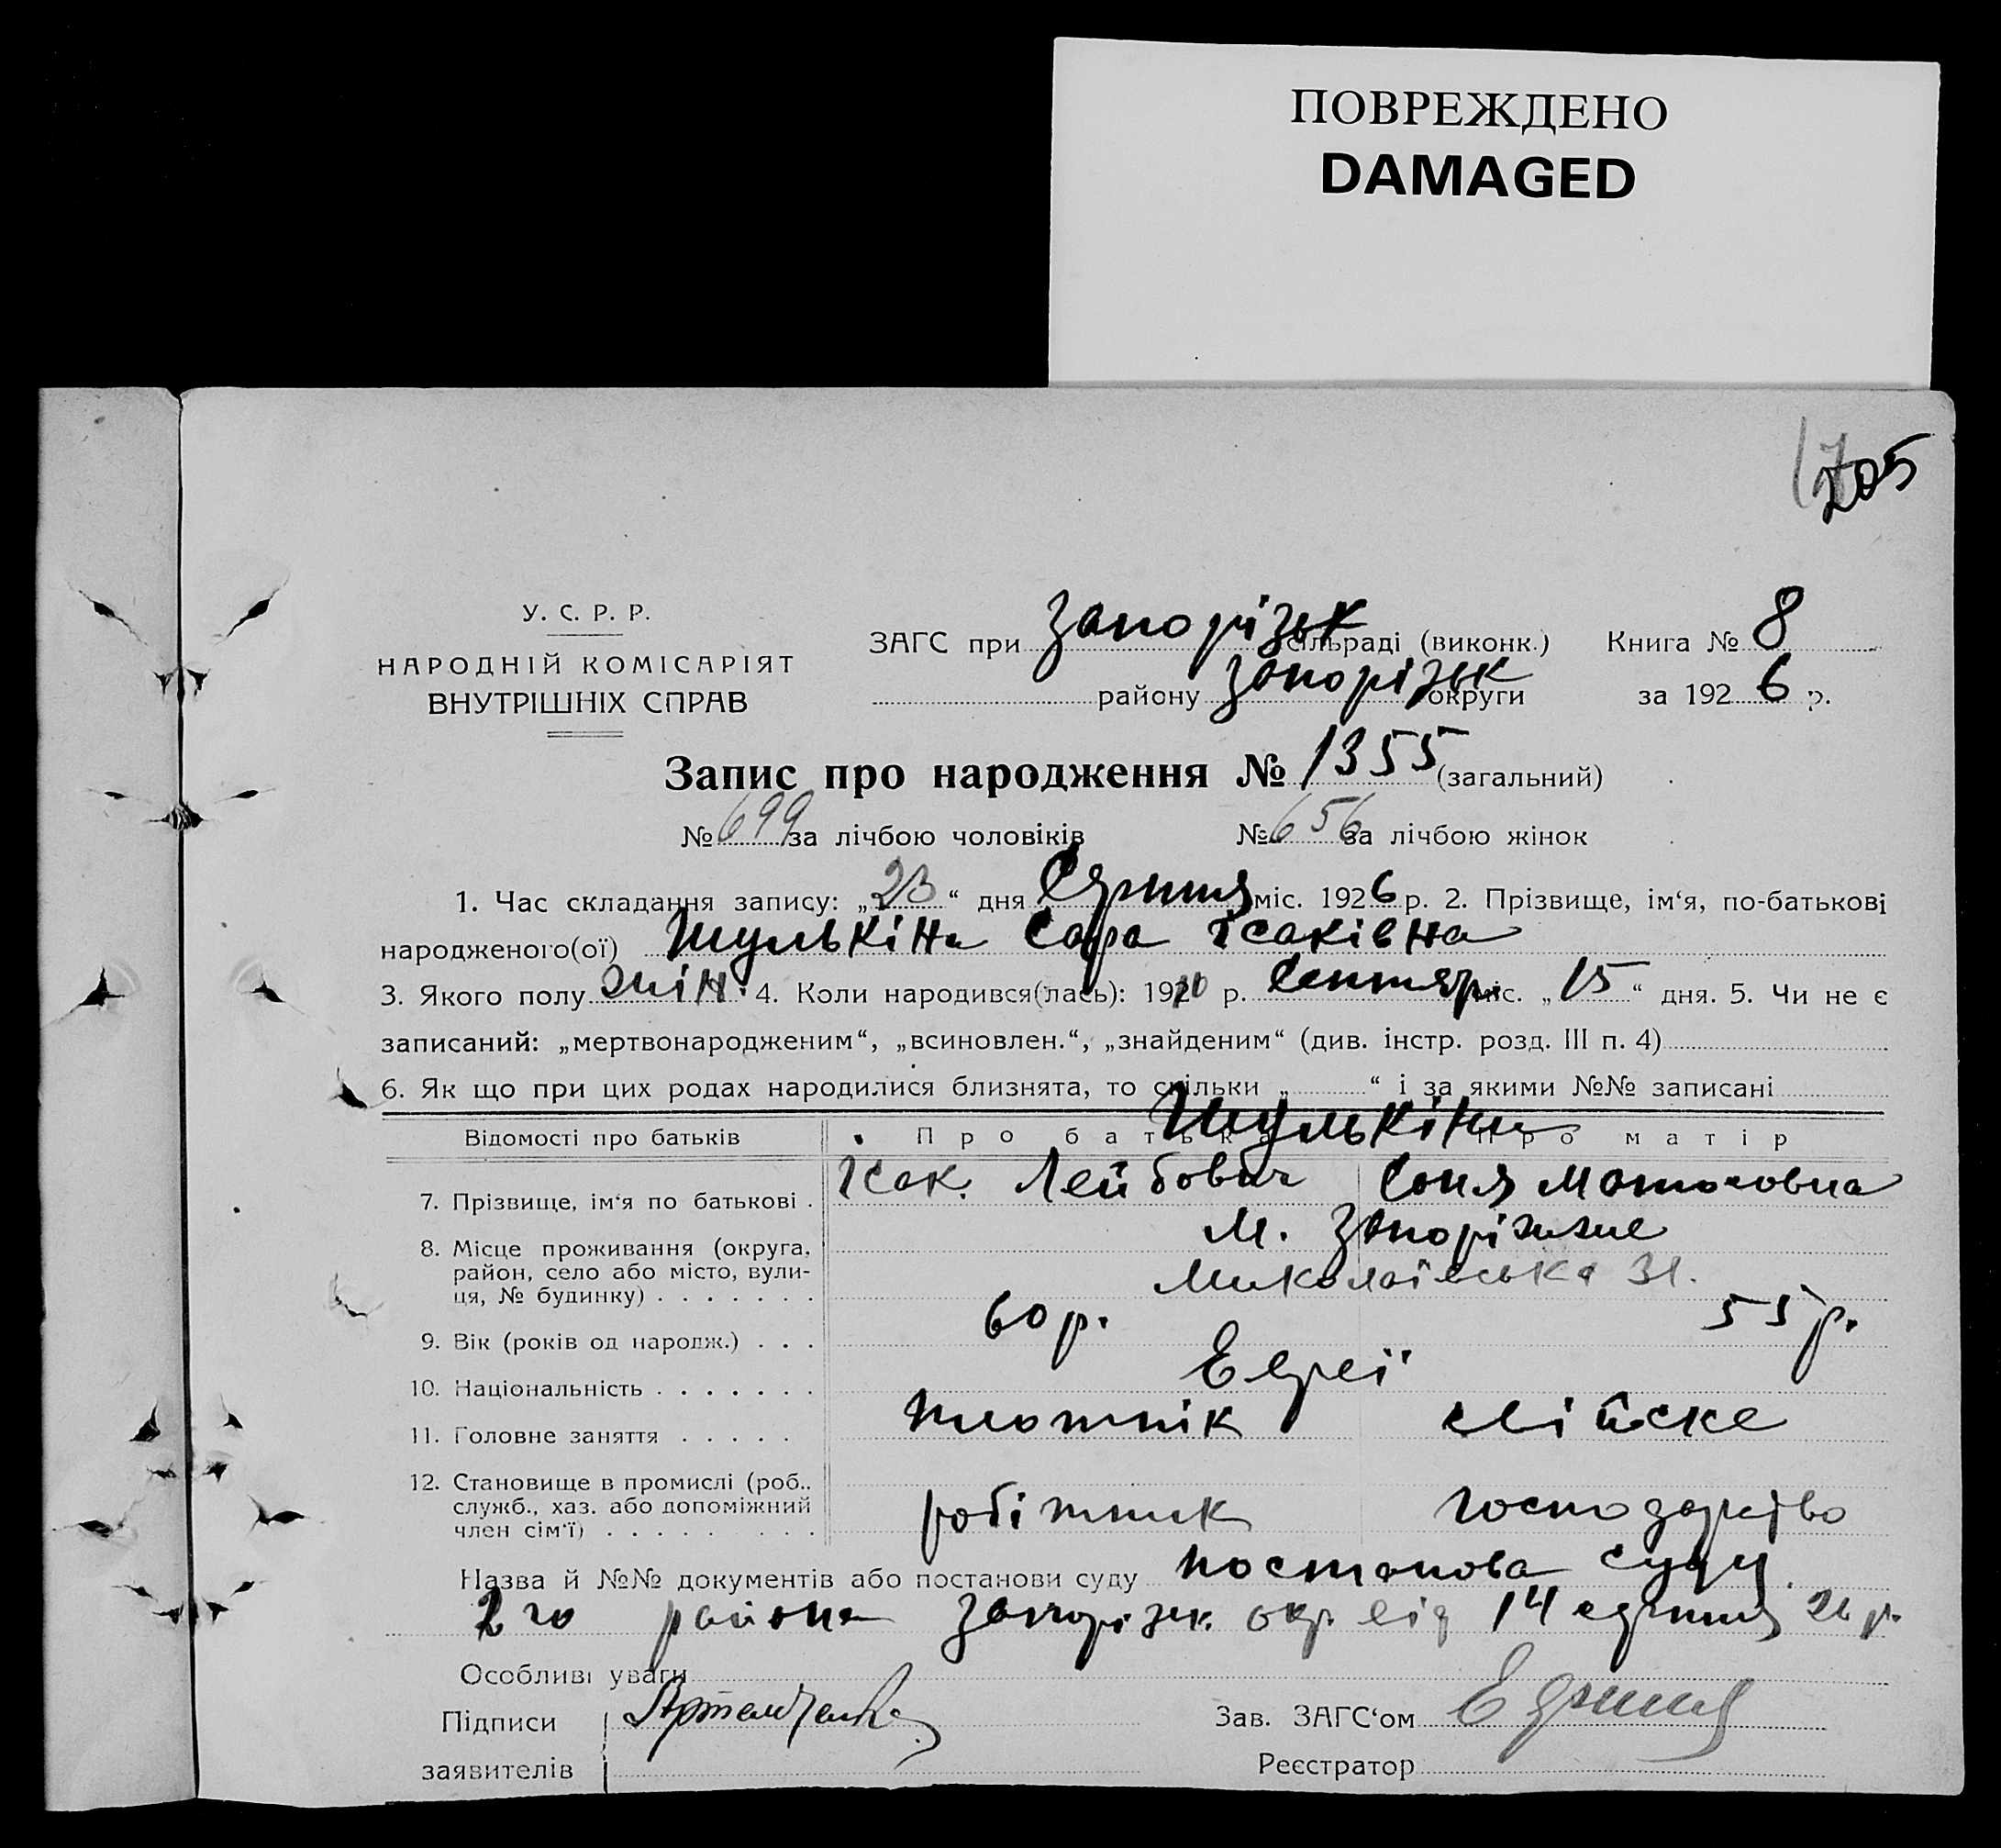 ПОВРЕЖДЕНО
DAMAGED
205
У. С. Р. Р.
НАРОДНІЙ КОМІСАРІЯТ
ВНУТРІШНІХ СПРАВ
ЗАГС при Запорізьк сільраді (виконк.) Книга № 8
району Запорізьк округи за 1926 р.
Запис про народження № 1355 (загальний)
№ 699 за лічбою чоловіків № 656 за лічбою жінок
1. Час складання запису: „23“ дня Серпня міс. 1926 р. 2. Прізвище, ім‘я, по-батькові
народженого(ої) Шулькіна Сара Ісаківна
3. Якого полу жін. 4. Коли народився(лась): 19 р. Сентяр. міс. „15“ дня. 5. Чи не є
записаний: „мертвонародженим“, „всиновлен.“, „знайденим“ (див. інстр. розд. III п. 4)
6. Як що при цих родах народилися близнята, то скільки „ “ і за якими №№ записані
Шулькіни
Відомості про батьків Про батька Про матір
7. Прізвище, ім‘я по батькові . Ісак. Лейбович Соня
8. Місце проживання (округа, район, село або місто, вулиця, № будинку) . . . . . . . М. Запоріжже
Миколаівська 31.
9. Вік (років од народж.) . . . 60 р. 55 р.
10. Національність . . . . . . . Евреї
11. Головне заняття . . . . . плотнік
12. Становище в промислі (роб., служб., хаз. або допоміжний член сім‘ї) . . . . . . . . робітник господарство
Назва й №№ документів або постанови суду постанова суду
2го района Запорізьк. окр. від 14 серпня 26 р.
Особливі уваги
Підписи Зав. ЗАГС‘ом
заявителів Реєстратор